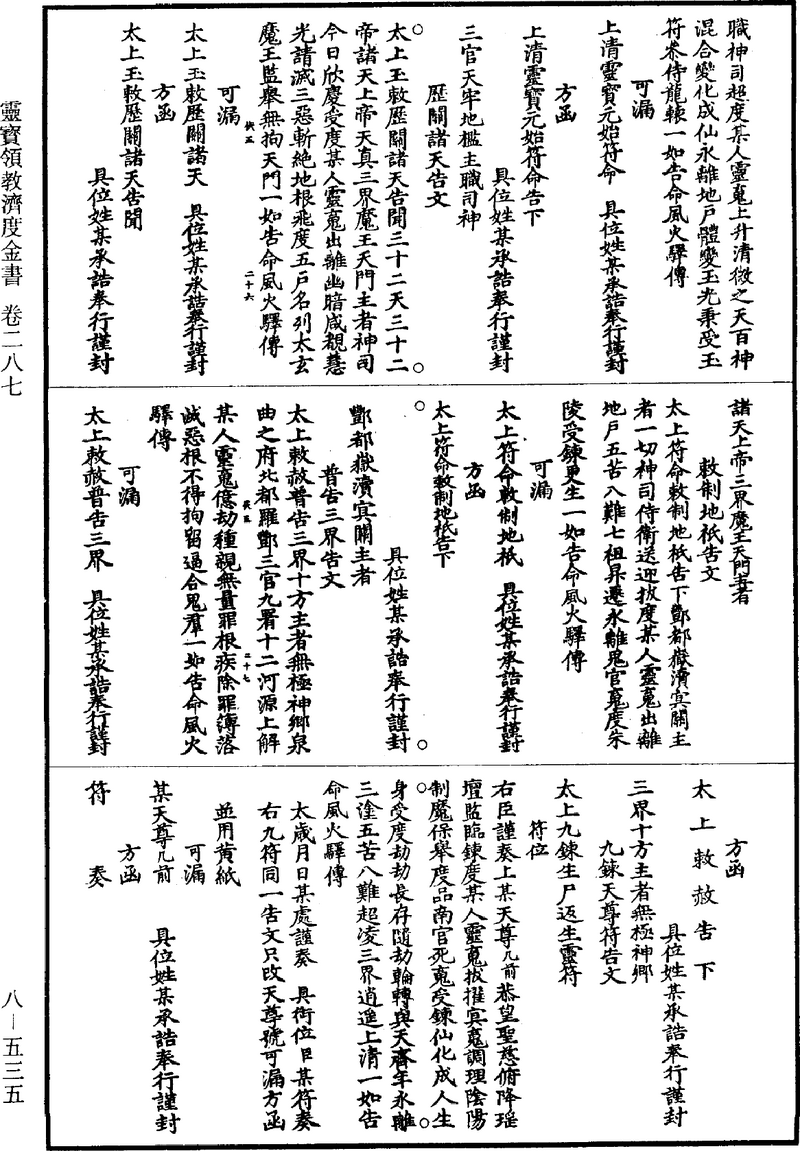 職神司超度某人靈䰟上升清微之天百神
混合變化成仙永離地戶體變玉光秉受玉
符恭侍龍轅一如告命風火驛傳
可漏
上清靈寳元始符命　具位姓某承誥奉行謹封
方函
上清靈寳元始符命告下
具位姓某承誥奉行謹封
三官天牢地檻主職司神
歷關諸天告文
太上玉敕歷關諸天告聞三十二天三十二
帝諸天上帝天真三界魔王天門主者神司
今日欣慶受度某人靈䰟出離幽暗咸覩慧
光請滅三惡斬絶地根飛度五戶名列太玄
魔王監舉無拘天門一如告命風火驛傳
侠五
二十六
可漏
太上玉敕歷關諸天　具位姓某承誥奉行謹封
方函
太上玉敕歷關諸天告聞
具位姓某承誥奉行謹封
諸天上帝三界魔王天門主者
敕制地祇告文
太上符命敕制地祇告下酆都嶽瀆㝠關主
者一切神司侍衛送迎拔度某人靈䰟出離
地戶五苦八難七祖昇遷永離鬼官䰟度朱
陵受鍊更生一如告命風火驛傳
可漏
太上符命敕制地祇　具位姓某承誥奉行謹封
方函
太上符命敕制地祇告下
具位姓某承誥奉行謹封
酆都嶽瀆㝠關主者
普告三界告文
太上敕赦普告三界十方主者無極神鄉泉
曲之府北都羅酆三官九署十二河源上解
某人靈䰟億劫種親無量罪根疾除罪簿落
滅惡根不得拘留逼合鬼羣一如告命風火
驛傳
侠五
二十七
可漏
太上敕赦普告三界　具位姓某承誥奉行謹封
方函
太上敕赦告下
具位姓某承誥奉行謹封
三界十方主者無極神鄉
九鍊天尊符告文
太上九鍊生尸返生靈符
符位
右臣謹奏上某天尊几前恭望聖慈俯降瑶
壇監臨鍊度某人靈䰟拔擢㝠䰟調理陰陽
制魔保舉度品南宮死䰟受鍊仙化成人生
身受度劫劫長存隨劫輪轉與天齊年永離
三塗五苦八難超凌三界逍遥上清一如告
命風火驛傳
太歲月日某處謹奏　具銜位臣某符奏
右九符同一告文只改天尊號可漏方函
並用黄紙
可漏
某天尊几前　具位姓某承誥奉行謹封
方函
符奏
靈寶領教濟度金書　卷二八七
八—五三五